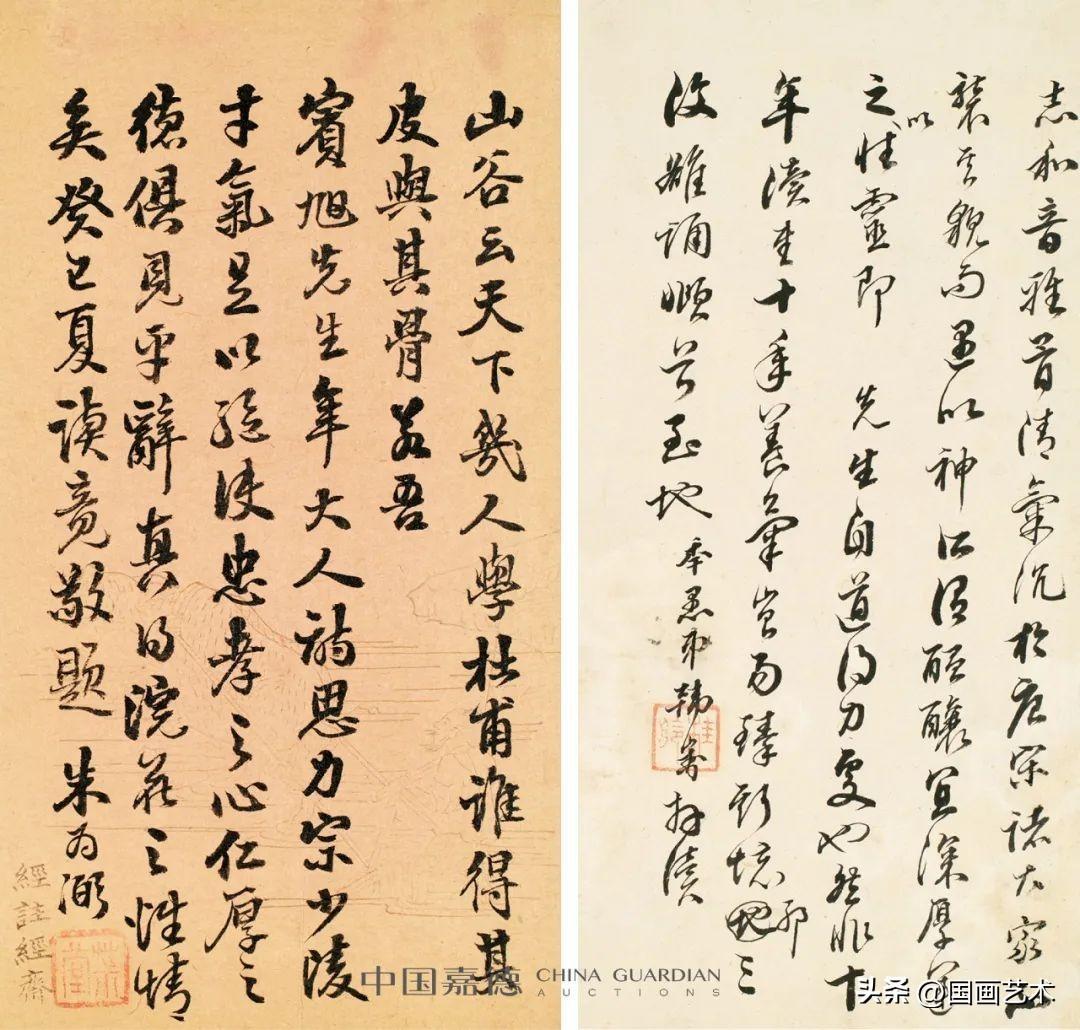 志和音雅旨清氣沉於唐宋諸大家不
襲其貌而遇以神 醖釀宜深厚
以
之性靈即 先生自道得力處也然非十
年讀書十年養氣 易臻斯境耶三
復雒誦頓首至地 愚弟韓崶拜讀
山谷云天下幾人學杜甫誰得其
皮與其骨若吾
賓旭先生年大人詩思力宗少陵
才氣足以驅使忠孝之心仁厚之
德俱見乎辭真得浣花之性情
矣癸巳夏讀竟敬題 朱為弼
經註經齋
中国嘉德 CHINA GUARDIAN
AUCTIONS
头条 @国画艺术